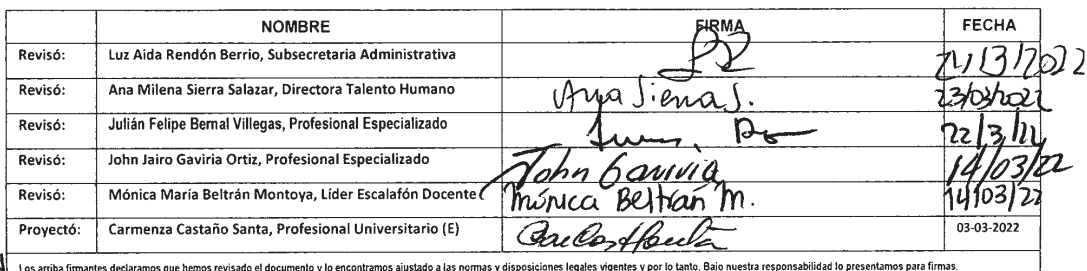 NOMBRE FIRMA FECHA
Revisó: Luz Aida Rendón Berrio, Subsecretaria Administrativa
Revisó: Ana Milena Sierra Salazar, Directora Talento Humano Ana Sierra S. 23/03/2022
Revisó: Julián Felipe Bernal Villegas, Profesional Especializado 22/3/22
Revisó: John Jairo Gaviria Ortiz, Profesional Especializado John Gaviria 14/03/22
Revisó: Mónica María Beltrán Montoya, Líder Escalafón Docente Mónica Beltrán M. 14/03/22
Proyectó: Carmenza Castaño Santa, Profesional Universitario (E) 03-03-2022
Los arriba firmantes declaramos que hemos revisado el documento y lo encontramos ajustado a las normas y disposiciones legales vigentes y por lo tanto. Bajo nuestra responsabilidad lo presentamos para firmas.